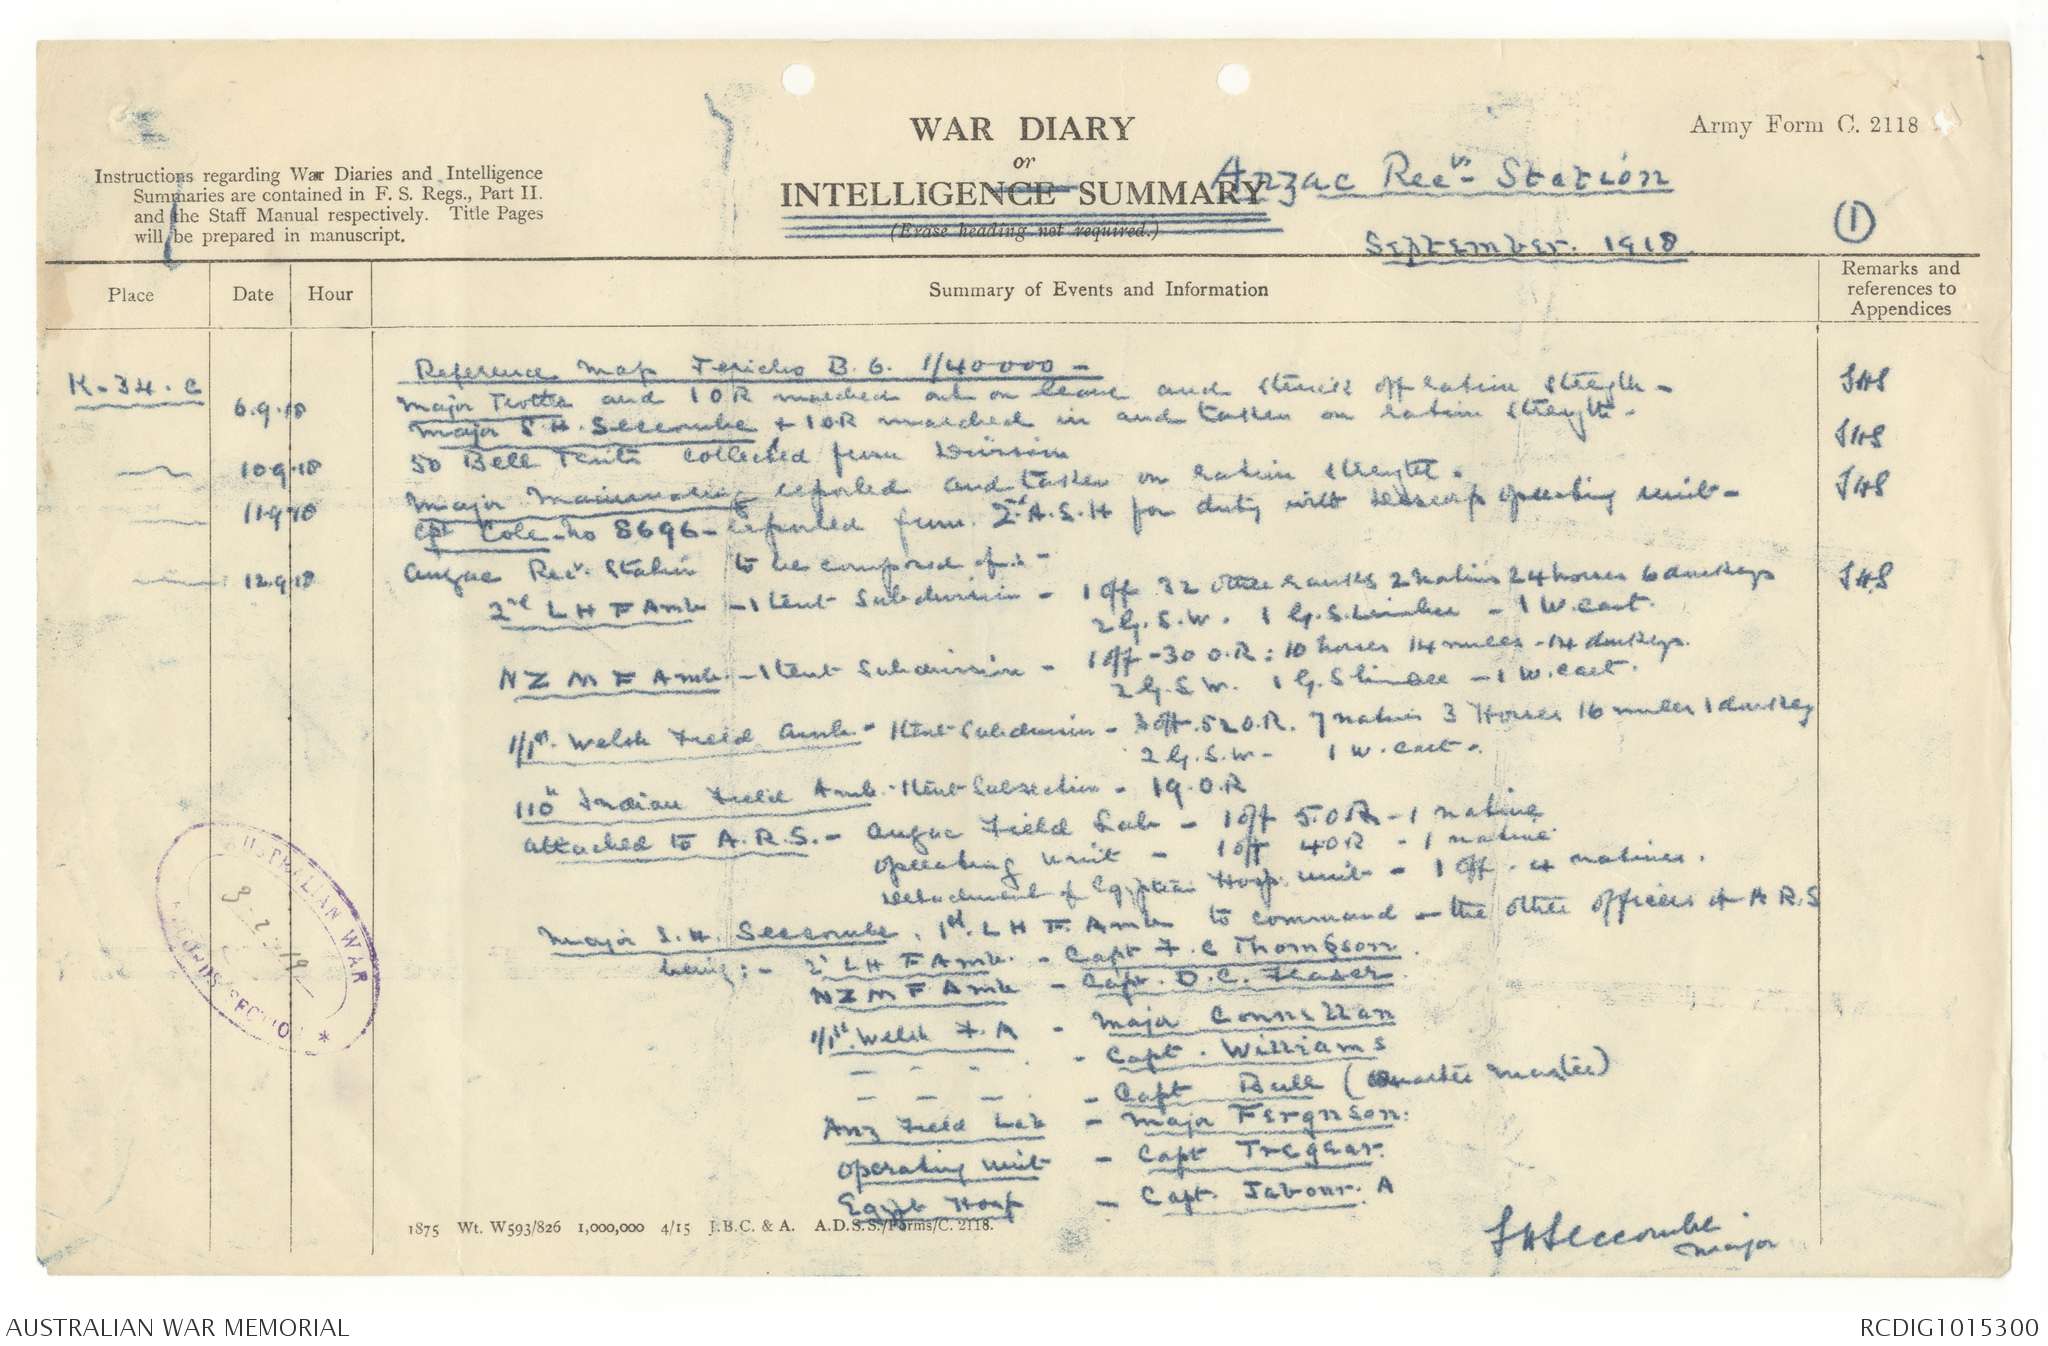 WAR DIARY
or
INTELLIGENCE SUMMARY
(Erase heading not required.)
Army Form C. 2118
Instructions regarding War Diaries and Intelligence
Summaries are contained in F. S. Regs., Part II.
and the Staff Manual respectively. Title Pages
will be prepared in manuscript.
Anzac Recvs- Station
September. 1918
1
Place
Date
Hour
Summary of Events and Information
Remarks and
references to
Appendices
Reference Map Jericho B. 6. 1/40000 -
K-34.c 6.9.18 Major Trottle and 1 OR marched out on leave and struck off ration strength - SHS
Major S.H. Seccombe + 1 OR marched in and taken on ration strength. SHS
10.9.18 50 Bell Tents collected from Division
11.9.18 Major reported and taken on ration strength. SHS
Cpl Cole - No 8696 - reported from 2nd A.S.H for duty with operating unit -
12.9.18 Anzac Recv. Station to be composed of :- SHS
2nd L H F Amb - 1 tent Subdivision - 1 off 32 other ranks 2 natives 24 horses 6 donkeys
2 G.S.W. 1 G.S. Limber - 1 W. cart.
N Z M F Amb. - 1 tent Subdivision - 1 off - 30 O.R : 10 horses 14 mules - 14 donkeys.
2 G.S.W. 1 G.S limber - 1 W. cart.
1/1st. Welsh Field Amb - 1 tent Subdivision - 3 off. 52 O.R. 7 natives 3 Horses 16 mules 1 donkey
2 G.S.W - 1 W. cart -
110th Indian Field Amb - 1 tent Subsection - 19. O.R
attached to A.R.S. - Anzac Field Lab - 1 off 5. O.R - 1 native
Operating Unit - 1 off 4 OR - 1 native
Detachment of Egyptian Hosp. unit - 1 off. 4 natives.
Major S.H. Seccombe, 1st. L H F. Amb to command - the other officers of A R.S
being :- 2d L H F Amb. - Capt F. C Thompson.
NZ M F Amb - Capt. D.C. Fraser.
1/1st. Welsh F. A - Major Connellan
- - - - Capt. Williams
- - - - Capt Bull (Quarter Master)
Anz Field Lab - Major Ferguson.
Operating Unit - Capt Tregear.
Egypt Hosp - Capt. Jabour. A
SHSeccombe
Major
AUSTRALIAN WAR
RECORDS SECTION
1875 Wt. W593/826 1,000,000 4/15 J.B.C. & A. A.D.S.S./Forms/C. 2118.
AUSTRALIAN WAR MEMORIAL
RCDIG1015300